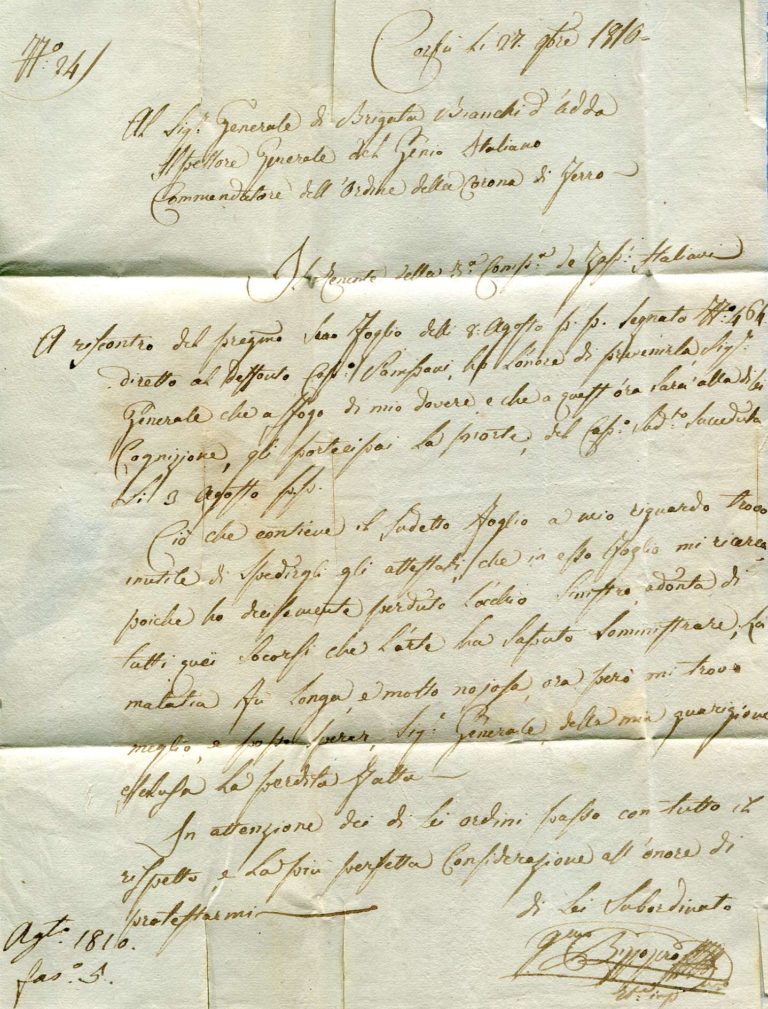 N.º 24
Corfù Li 27. 9bre 1810
Al Sig.r Generale di Brigata Bianchi d'Adda
Ispettore Generale del Genio Italiano
Commendatore dell'Ordine della Corona di Ferro
Il Tenente della 3.a Comp.a de Zap.i Italiani
A riscontro del pregmo Suo foglio delli 8. Agosto p.p. Segnato N.º 464
diretto al deffonto Cap.º, ho L'onore di prevenirla, Sig.r
Generale che a sfogo di mio dovere, e che a quest'ora sarà alla di lei
Cognizione, gli partecipai La morte, del Cap.º Sud.to Succeduta
Li 3 Agosto p.p.
Ciò che contiene il Sudetto foglio a mio riguardo trovo
inutile di Spedirgli gli attestati, che in esso foglio mi ricerca
poiche ho perduto L'occhio Sinistro, adonta di
tutti quei Socorsi che L'arte ha Saputo Somministrare; La
malatia fù Longa, e molto nojosa, ora però mi trovo
meglio, e posso Sperar, Sig.r Generale, della mia guarigione
esclusa La perdita fatta
In attenzione dei di Lei ordini passo con tutto il
rispetto, e La più perfetta Considerazione all'onore di
protestarmi
di Lei Subordinato
Ag.to 1810.
fas.º 5.